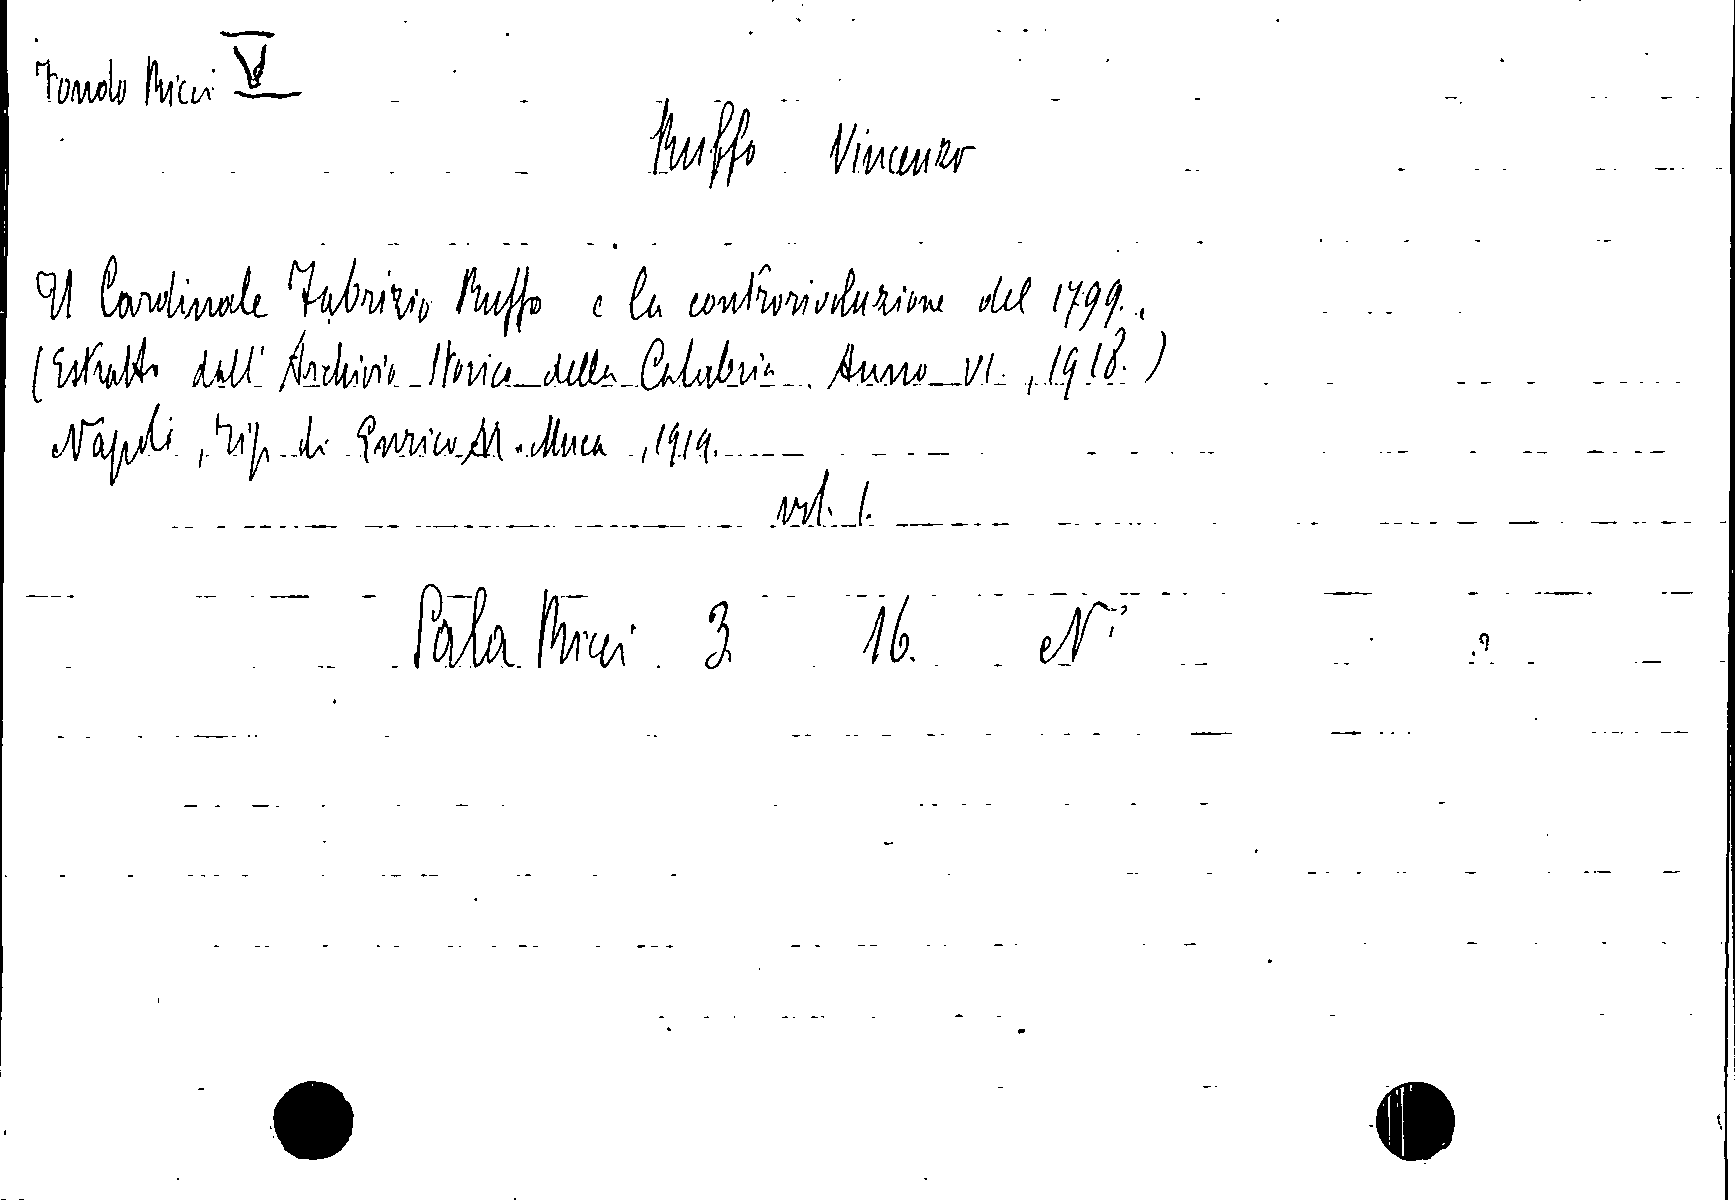 Fondo Ricci V
Ruffo Vincenzo
Il Cardinale Fabrizio Ruffo e la controrivoluzione del 1799.
(Estratto dall' Archivio Storico della Calabria Anno VI., 1918.)
Napoli, Tip. di Enrico M. Muca, 1919.
vol. 1.
Sala Ricci 3 16. N°